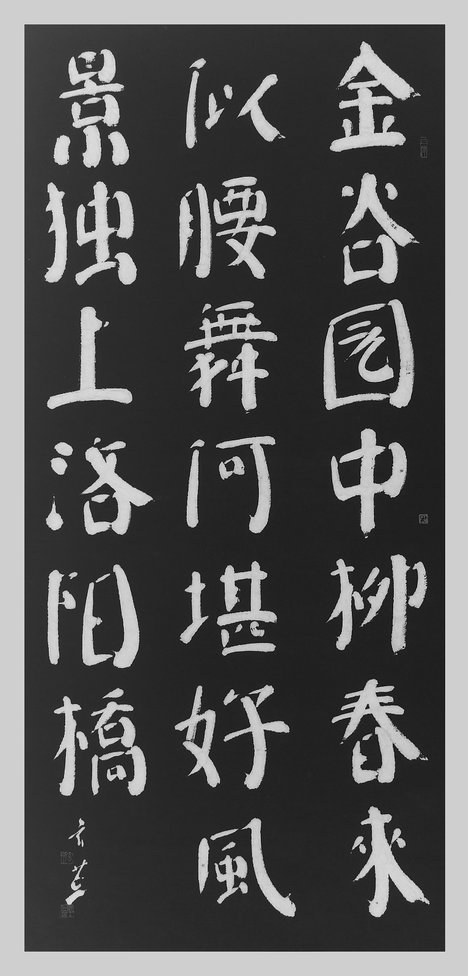 金谷园中柳春來
似腰舞何堪好風
景独上洛阳橋